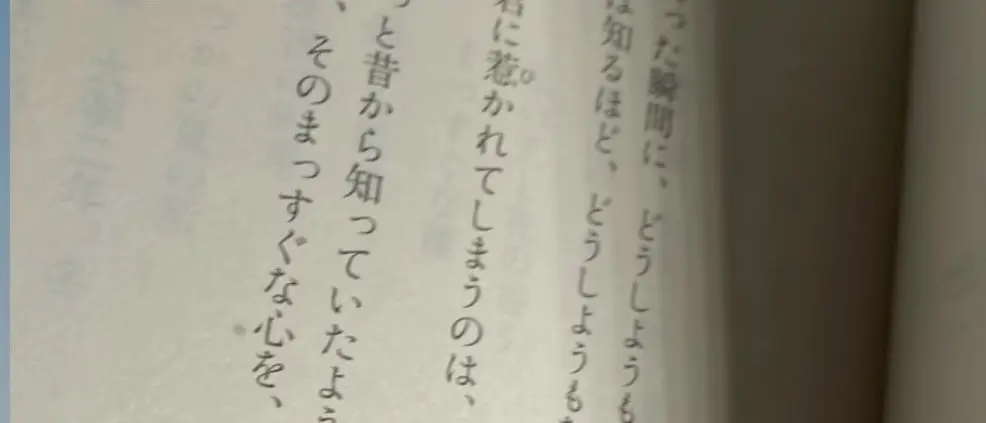 った瞬間に、どうしようも
は知るほど、どうしようも
君に惹かれてしまうのは、
っと昔から知っていたよう
、そのまっすぐな心を、